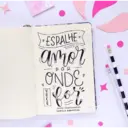 ESPALHE
amor
POR
ONDE
for